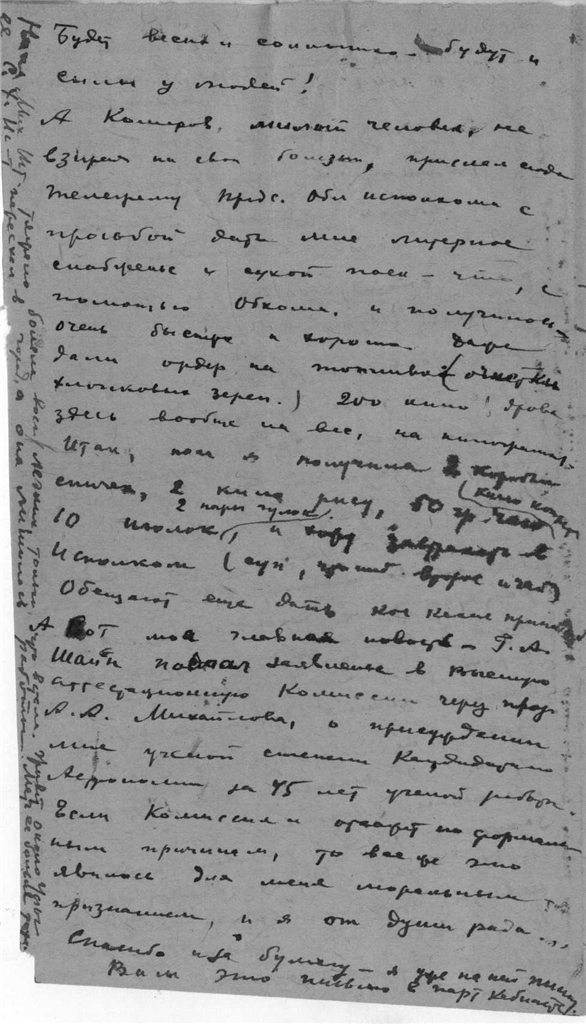 Будет весна и солнышко – будут и
силы у людей!
А Комаров, милый человек, не
взирая на свои болезни, прислал сюда
телеграмму предс. Облисполкома с
просьбой дать мне литерное
снабженье и сухой паек – что, с
помощью Обкома, и получилось
очень быстро и хорошо даже
дали ордер на топливо (очистки
хлопковых зерен.) 200 кило! дрова
здесь вообще на вес, на килограммы.
Итак, пока я получила 2 коробки
спичек, 2 кило рису, 50 гр. чаю
(кило конфет
2 пары чулок
10 иголок, и хожу завтракать в
Исполком (суп, второе и чай)
Обещают еще дать кое какие
А вот моя главная новость – Г. А.
Шайн подал заявленье в Высшую
аттестационную Комиссию через проф.
А. А. Михайлова, о присуждении
мне ученой степени Кандидата
Астрономии за 45 лет ученой работы.
Если Комиссия и откажет по формаль
ным причинам, то все же это
явилось для меня моральным
признанием, и я от души рада...
Спасибо за бумагу – я уже на ней пишу
Вам это письмо в парткабинете.
тяжело больна, только
переехал в город, а она лишилась работы.